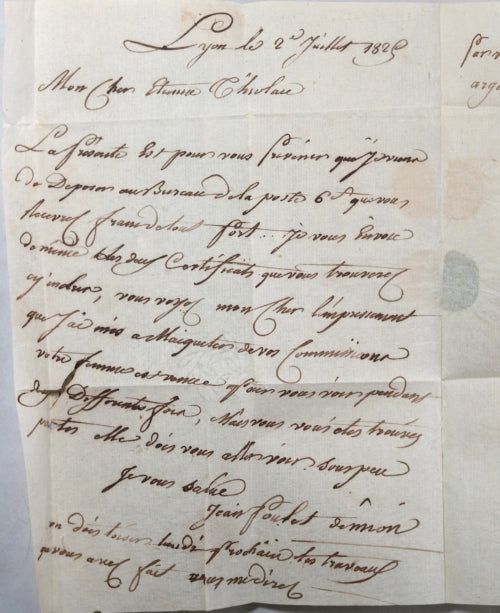 Lyon le 2d Juillet 182
Mon Cher Etienne
La présente Est pour vous prévenir que Je viens
de Deposer au Bureau de la poste 6 que vous
Recevrez franc de tout port .. Je vous Envoie
de même les deux Certificats que vous trouverez
cy inclus, vous voyez mon Cher l'empressement
que J'ai mis a de vos Commissions
votre femme est venue pour vous voir pendant
Differentes fois, vous vous êtes trouvés
Elle dois vous aller voir sous peu
Je vous salue
Jean
on dois lundi prochain les travaux
que vous avez fait vous me direz
arg